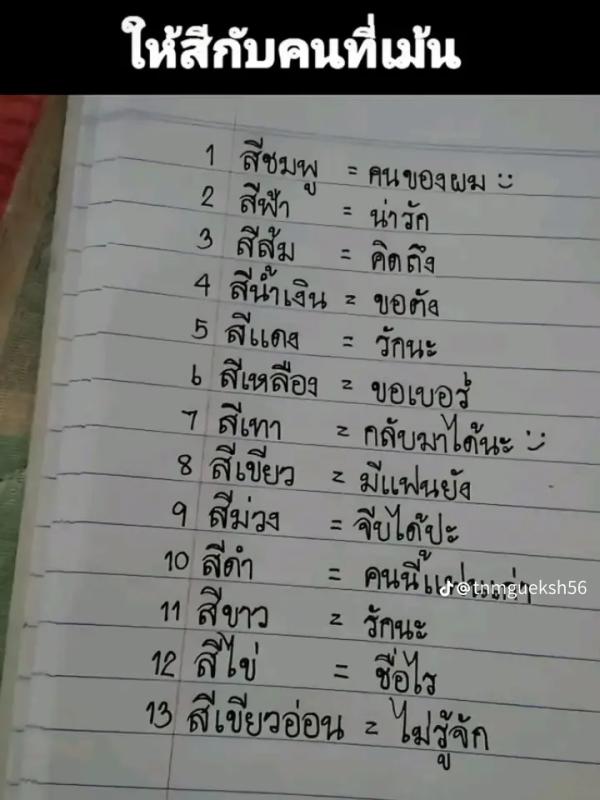 ให้สีกับคนที่เม้น
1 สีชมพู = คนของผม
2 สีฟ้า = น่ารัก
3 สีส้ม = คิดถึง
4 สีน้ำเงิน = ขอตัง
5 สีแดง = รักนะ
6 สีเหลือง = ขอเบอร์
7 สีเทา = กลับมาได้นะ
8 สีเขียว = มีแฟนยัง
9 สีม่วง = จีบได้ปะ
10 สีดำ = คนนี้
@tnmgueksh56
11 สีขาว = รักนะ
12 สีไข่ = ชื่อไร
13 สีเขียวอ่อน = ไม่รู้จัก